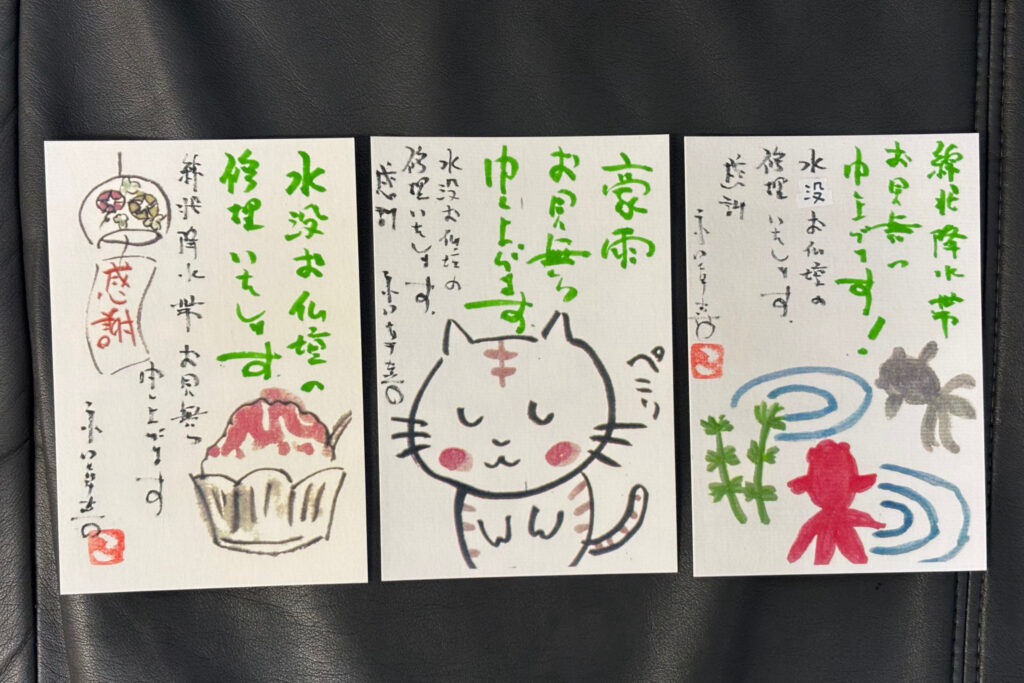 水没お仏壇の
修理いたします
線状降水帯お見舞い
申し上げます
感謝。
豪雨
お見舞い
申し上げます
水没お仏壇の
修理いたします.
感謝
ペコリ
線状降水帯
お見舞い
申上げます!
水没お仏壇の
修理いたします.
感謝